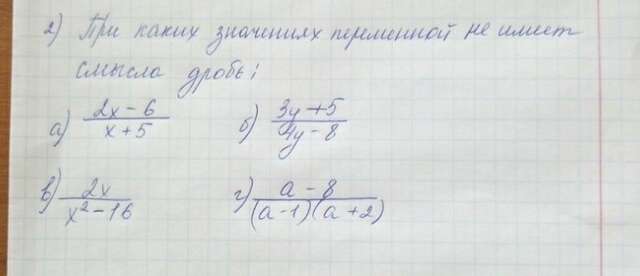 2) При каких значениях переменной не имеет
смысла дробь:
а) (2x - 6)/(x + 5) б) (3y + 5)/(4y - 8)
в) 2x/(x² - 16) г) (a - 8)/((a - 1)(a + 2))